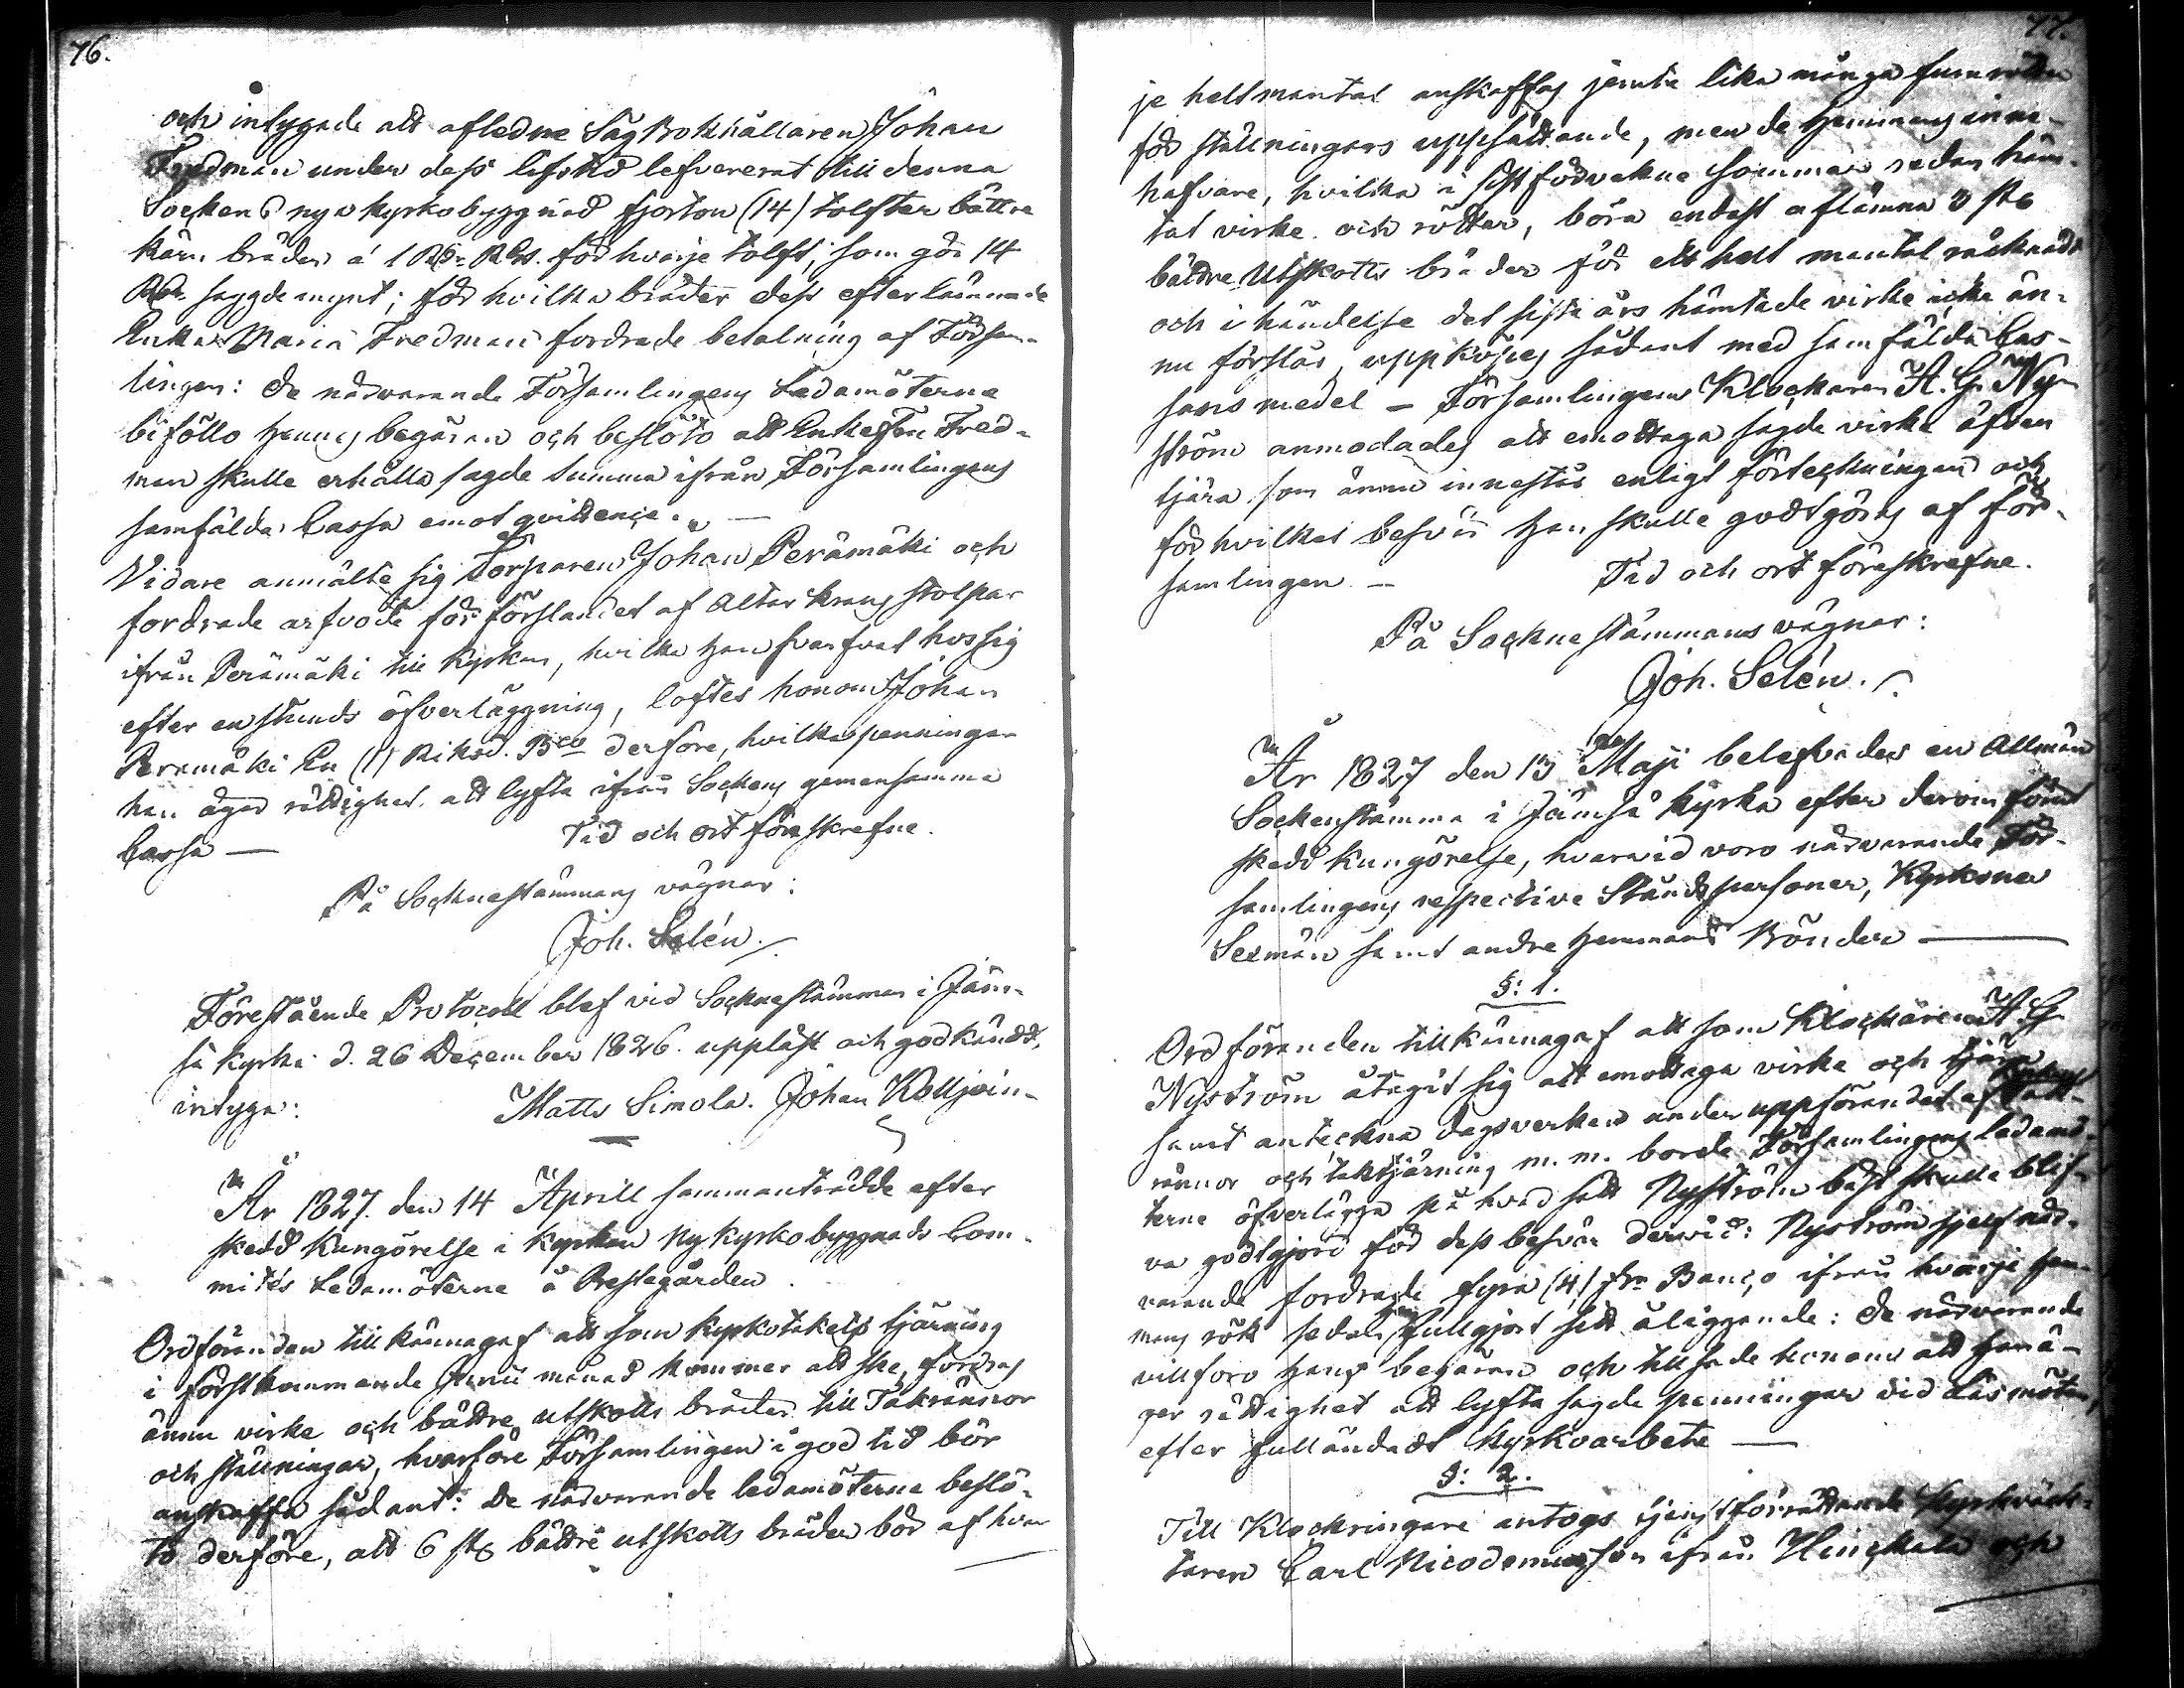 76.
och intygade att afledne Sågbokhållaren Johan
Fredman under dess lifstid lefvererat till denna
Sockens nya kyrkobyggnad fjorton (14) tolfter bättre
kärn bräder á 1 Rdr Rgs. för hvarje tolft, som gör 14
Rdr saggde mynt; för hvilka bräder dess efterlämnade
Enka Maria Fredman fordrade betalning af Försam-
lingen: de närvarande Församlingens Ledamöterne
biföllo hennes begäran och beslöto att Enkefru Fred-
man skulle erhålla sagde summa ifrån Församlingens
samfälda Cassa emot qvittence. —
Vidare anmälte sig Torparen Johan Perämäki och
fordrade arfvode för förslandet af Altar krans stolpar
ifrån Perämäki till Kyrkan, hvilka han svarfvat hos sig
efter en stunds öfverläggning, loftes honom Johan
Perämäki En (1) Riksd. Bco derföre, hvilka penningar
han äger rättighet att lyfta ifrån Sockens gemensamma
Cassa — Tid och ort föreskrefne.
På Socknestämmans vägnar:
Joh. Selén.
Förestående Protocoll blef vid Socknestämman i Jäm-
sä kyrka d. 26 December 1826. uppläst och godkändt,
intyga: Matts Simola. Johan Kolljoin-
År 1827. den 14 Aprill sammanträdde efter
skedd Kungörelse i Kyrkan Nykyrkobyggnads Com-
mités Ledamöterne å Prestegården.
Ordföranden tillkännagaf att som kyrkotakets tjärning
i förstkommande Junii månad kommer att ske, fordras
ännu virke och bättre utskotts bräder till Takrännor
och ställningar, hvarföre Församlingen i god tid bör
anskaffa sådant: De närvarande ledamöterne beslö-
to derföre, att 6 st. bättre utskotts bräder bör af hvar
77.
je helt mantal anskaffas jemte lika många furu rötter
för ställningars uppsättande, men de Hemmans inne-
hafvare, hvilka i sistförvekne Sommar redan häm-
tat virke och rötter, böra endast aflämna 3 st.
bättre Utskotts bräder för ett helt mantal räknadt
och i händelse det sista års hämtade virke icke än-
nu förslår, uppköpes sådant med samfälda Cas-
sans medel — Församlingens Klockaren A. G. Ny-
ström anmodades att emottaga sagde virke äfven
tjära som ännu innestår enligt förteckningen och
för hvilket besvär han skulle godtgöras af för-
samlingen — Tid och ort föreskrefne.
På Socknestämmans vägnar:
Joh. Selén.
År 1827 den 13 Maji belefvades en Allmän
Sockenstämma i Jämsä kyrka efter derom förut
skedd kungörelse, hvarvid voro närvarande För-
samlingens respective Ståndspersoner, Kyrkones
Sexmän samt andre Hemmans Bönder —
§: 1.
Ordföranden tillkännagaf att som Klockaren A. G.
Nyström åtagit sig att emottaga virke och tjära
samt anteckna dagsverken under uppförandet af Kyrkans Tak-
rännor och taktjärning m. m. borde Församlingens ledamö-
terne öfverlägga på hvad sätt Nyström bäst skulle blif-
va godtgjord för dess besvär dervid: Nyström sjelf när-
varande fordrade fyra (4) Banco ifrån hvarje Hem-
mans rök sedan han fullgjort sitt åliggande: De närvarande
villforo hans begäran och tillsade honom att han ä-
ger rättighet att lyfta sagde penningar vid Läsmöten,
efter fulländadt Kyrkoarbete —
§: 2.
Till Klockringare antogs tjenstförrättande Kyrkväck-
taren Carl Nicodemusson ifrån och